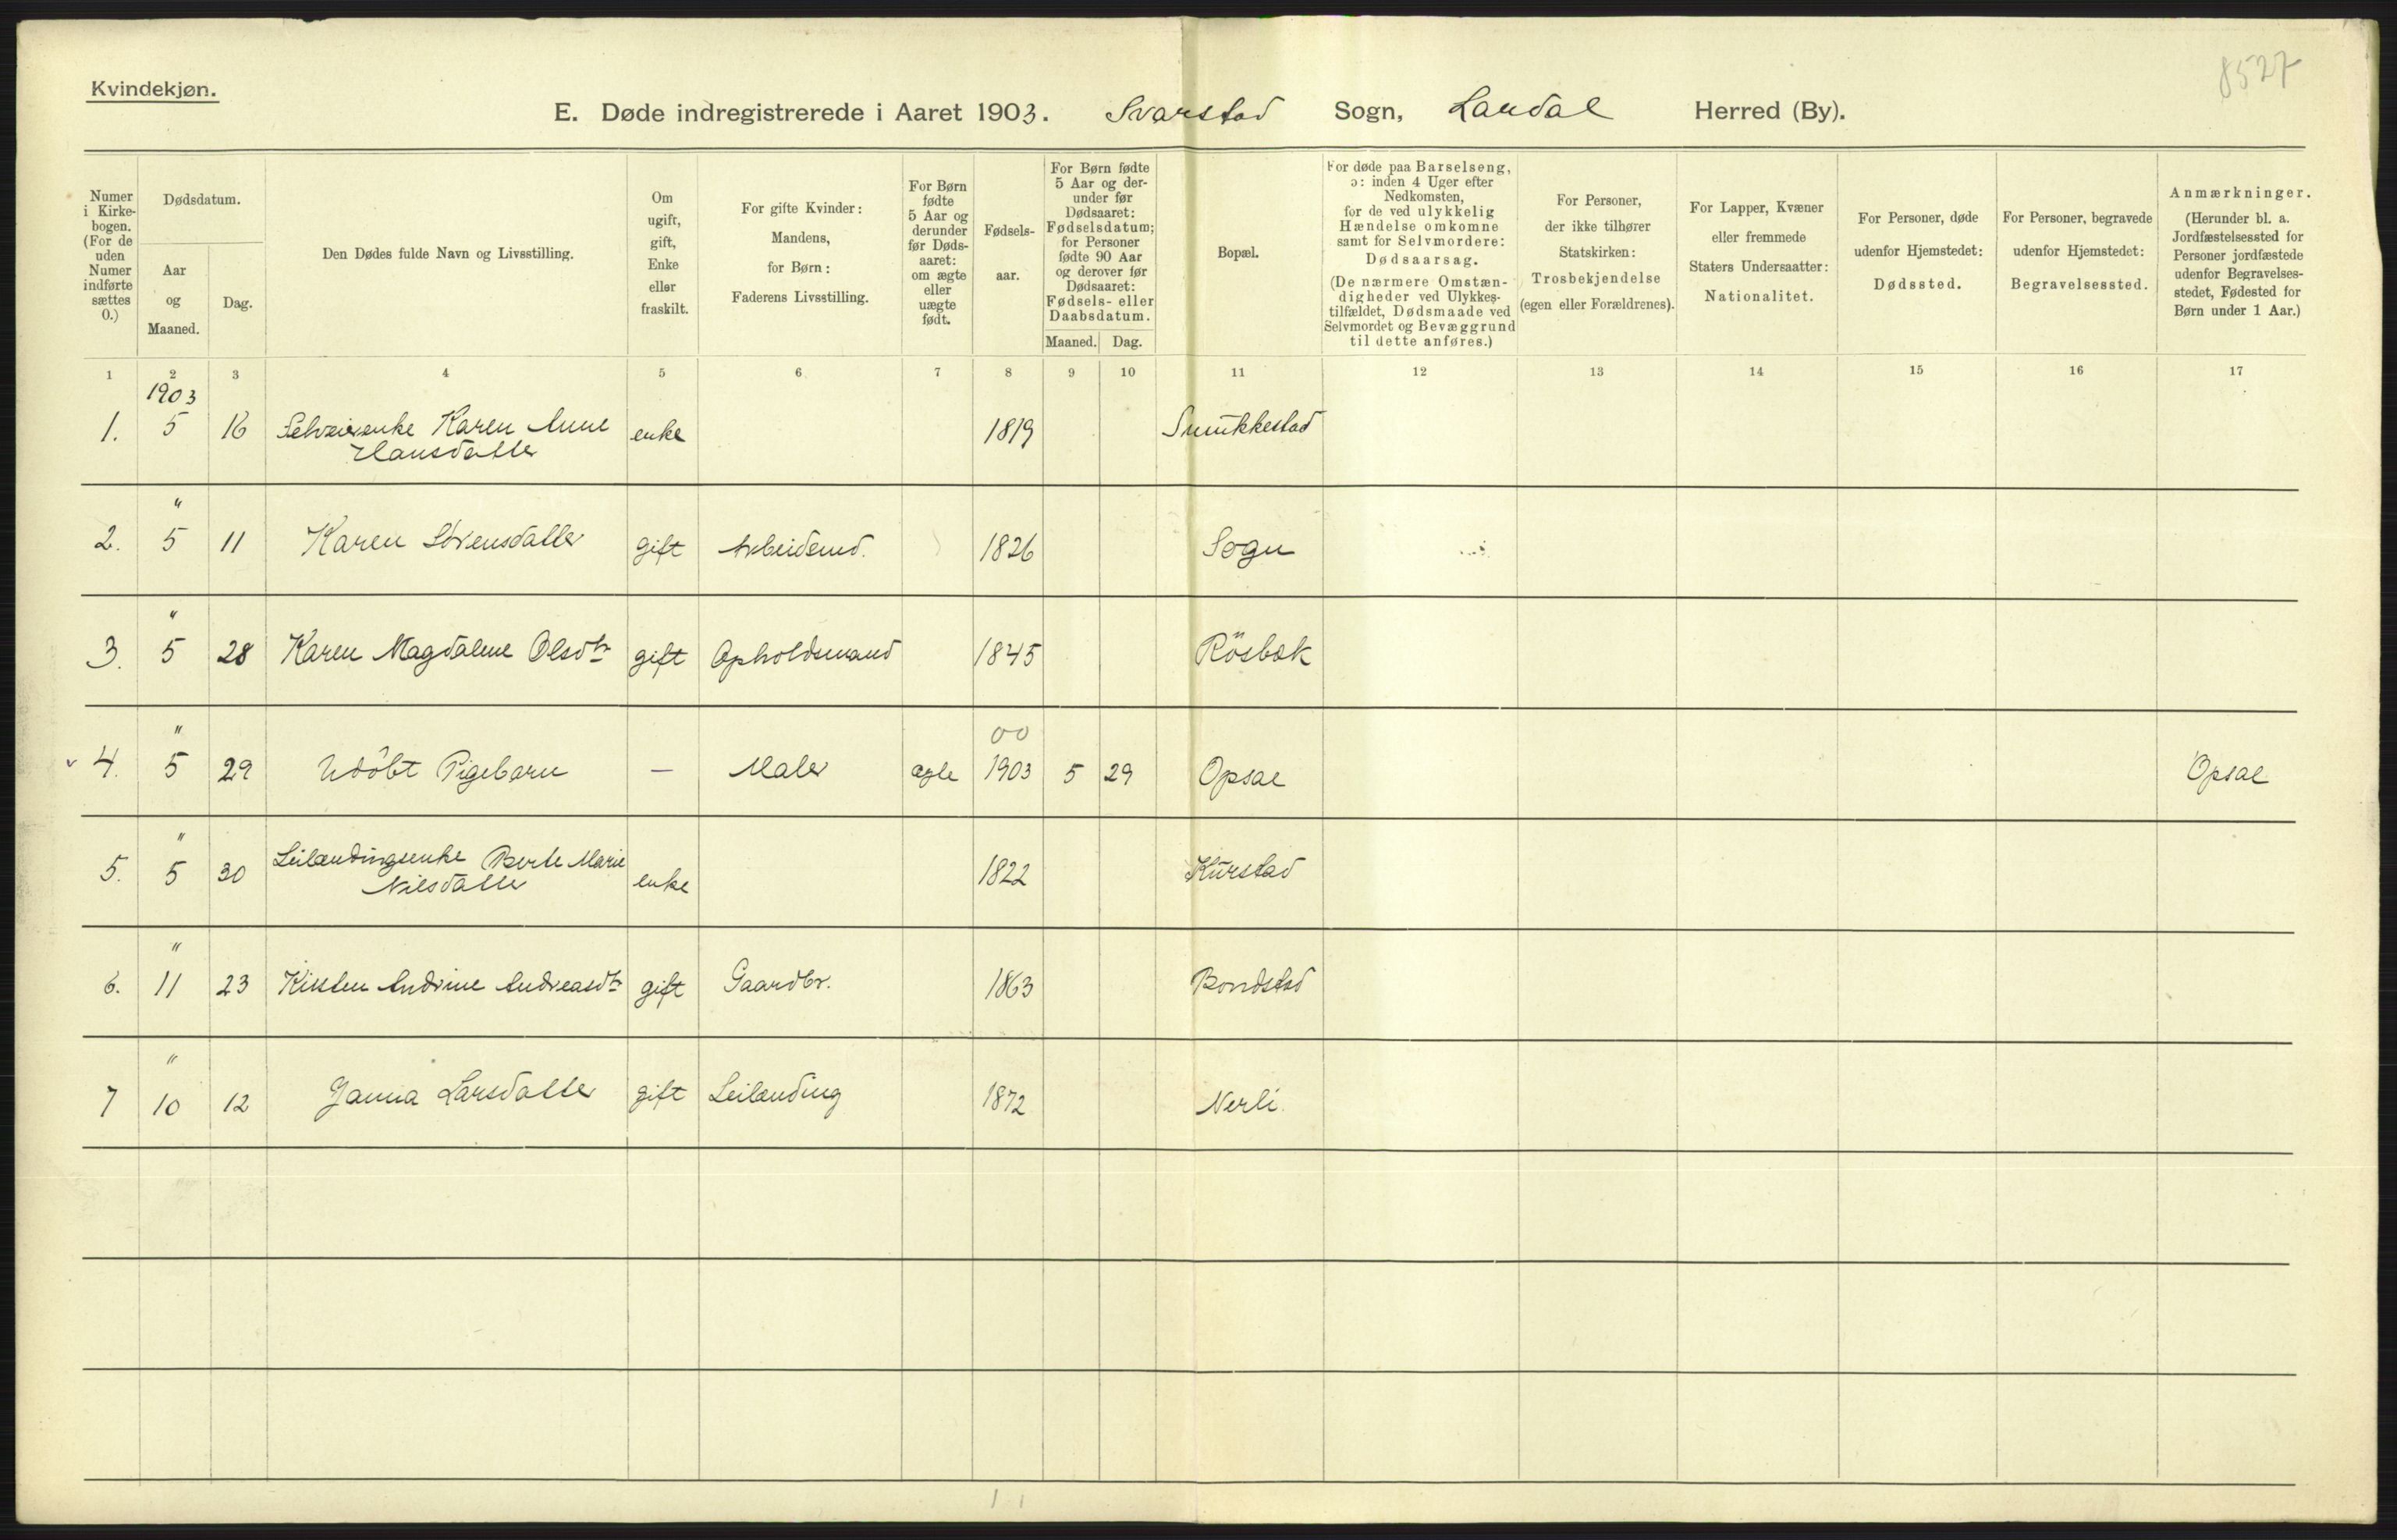 8527
Kvindekjøn.
E. Døde indregistrerede i Aaret 1903. Svarstad Sogn, Lardal Herred (By).
Numer i Kirkebogen. (For de uden Numer indførte sættes 0.)
Dødsdatum.
Aar og Maaned.
Dag.
Den Dødes fulde Navn og Livsstilling.
Om ugift, gift, Enke eller fraskilt.
For gifte Kvinder: Mandens, for Børn: Faderens Livsstilling.
For Børn fødte 5 Aar og derunder før Dødsaaret: om ægte eller uægte født.
Fødselsaar.
For Børn fødte 5 Aar og derunder før Dødsaaret: Fødselsdatum; for Personer fødte 90 Aar og derover før Dødsaaret: Fødsels- eller Daabsdatum.
Maaned. Dag.
Bopæl.
For døde paa Barselseng, ɔ: inden 4 Uger efter Nedkomsten, for de ved ulykkelig Hændelse omkomne samt for Selvmordere: Dødsaarsag. (De nærmere Omstændigheder ved Ulykkestilfældet, Dødsmaade ved Selvmordet og Bevæggrund til dette anføres.)
For Personer, der ikke tilhører Statskirken: Trosbekjendelse (egen eller Forældrenes).
For Lapper, Kvæner eller fremmede Staters Undersaatter: Nationalitet.
For Personer, døde udenfor Hjemstedet: Dødssted.
For Personer, begravede udenfor Hjemstedet: Begravelsessted.
Anmærkninger. (Herunder bl. a. Jordfæstelsessted for Personer jordfæstede udenfor Begravelsesstedet, Fødested for Børn under 1 Aar.)
1 2 3 4 5 6 7 8 9 10 11 12 13 14 15 16 17
1903
1. 5 16 Selveierenke Karen Anne enke 1819
Hansdatter
"
2. 5 11 Karen Sörensdatter gift Arbeidsmd. 1826 Sogn
"
3. 5 28 Karen Magdalene Olsdtr gift Opholdsmand 1845 Rösbæk
"
00
4. 5 29 Udöbt Pigebarn — Maler ægte 1903 5 29 Opsal Opsal
"
5. 5 30 Leilændingsenke Berte Marie enke 1822
Nilsdatter
"
6. 11 23 Kirsten Andrine Andreasdtr gift Gaardbr. 1863 Bondstad
"
7 10 12 Janna Larsdatter gift Leilænding 1872 Nerli